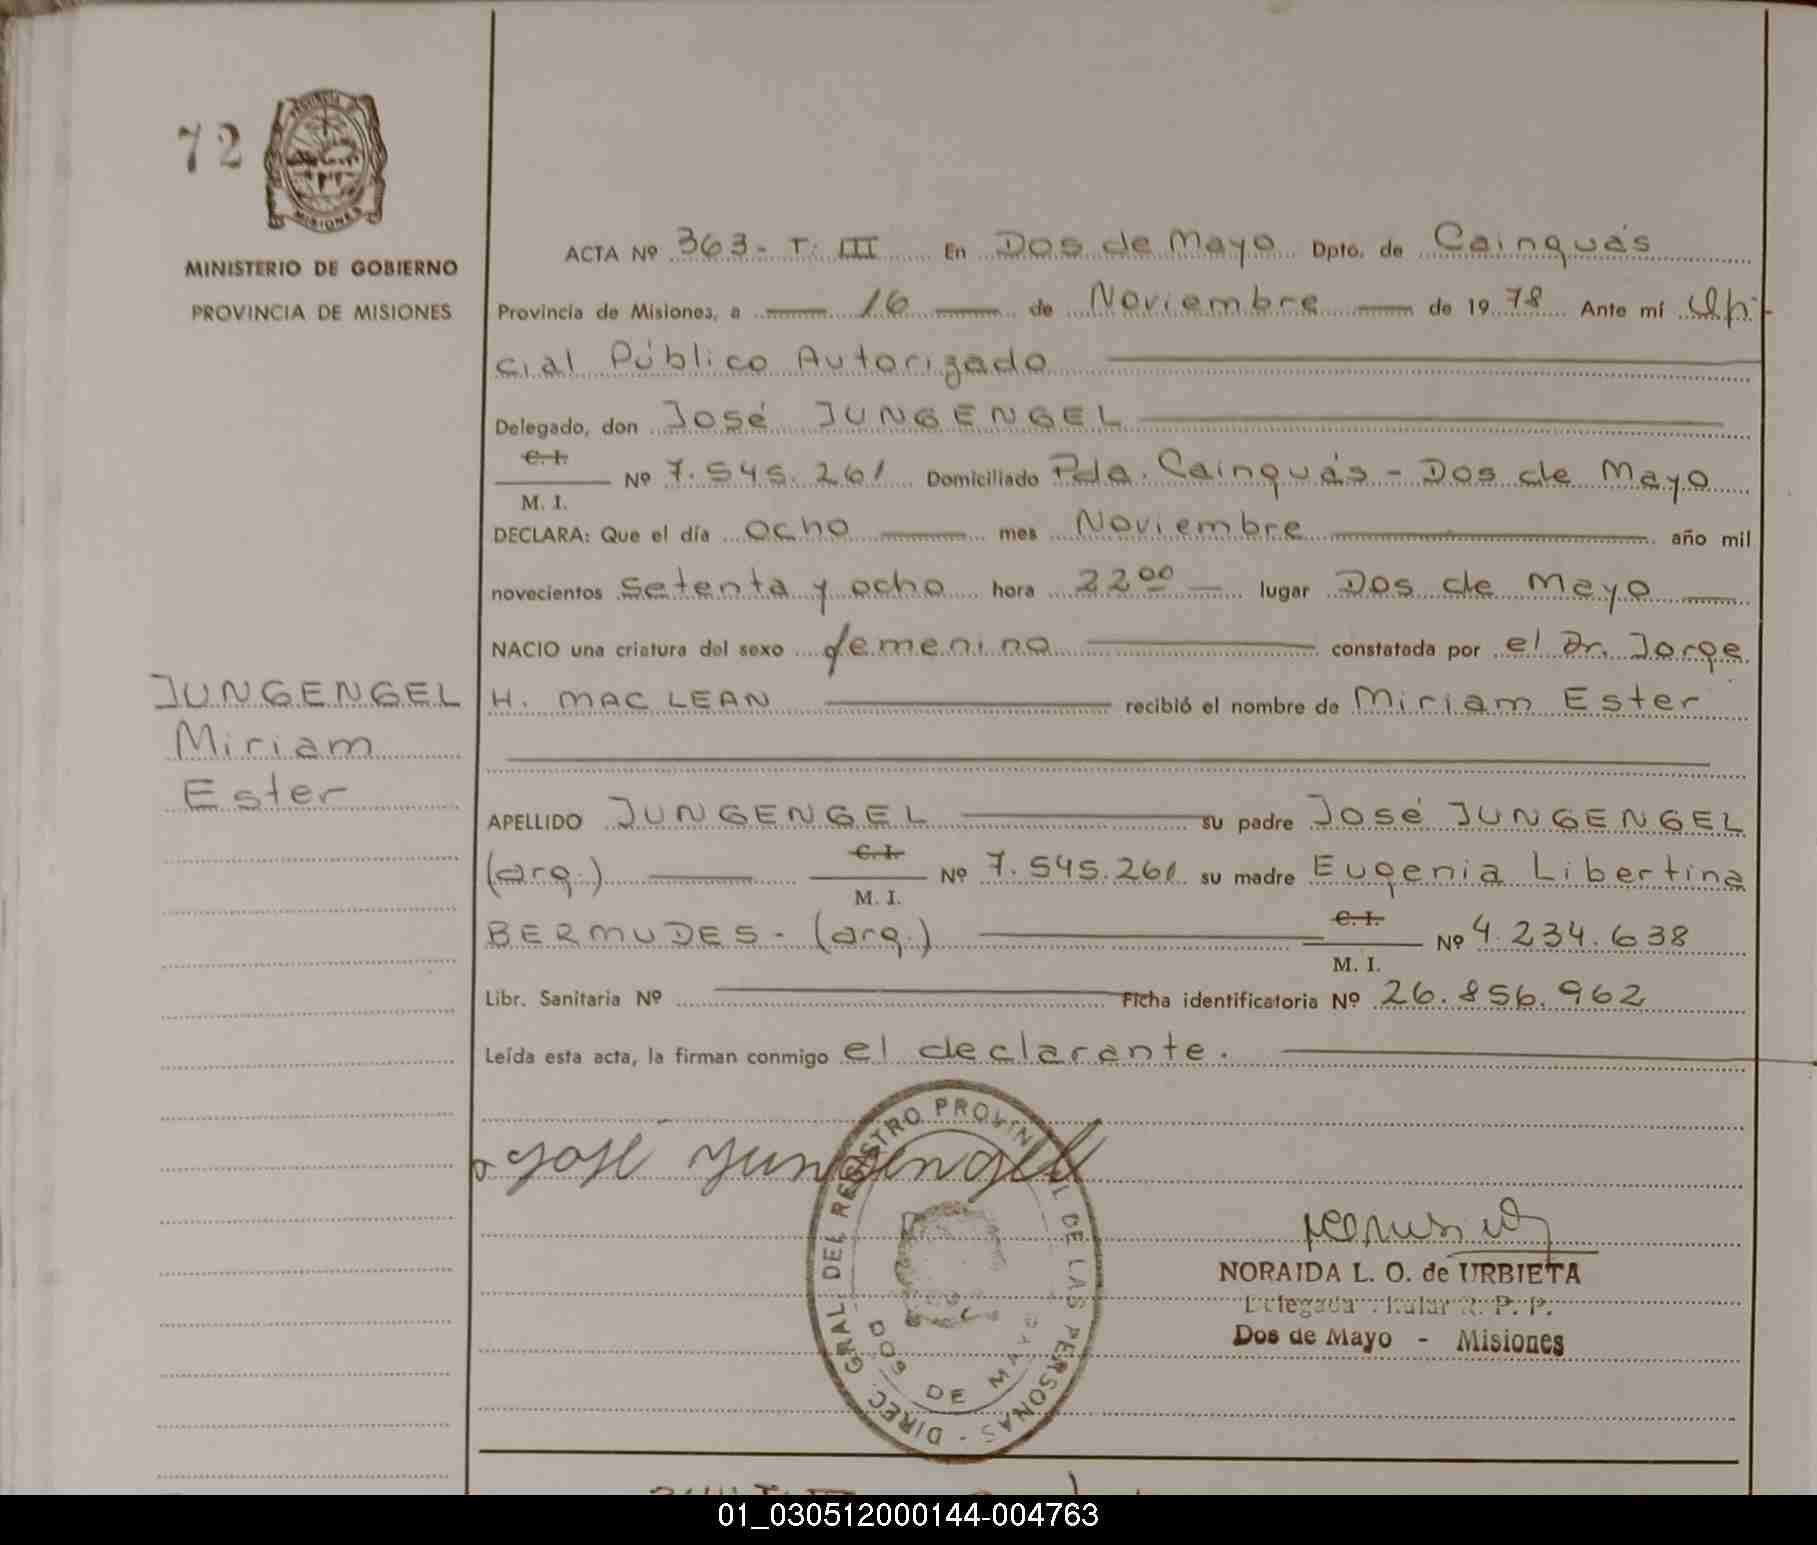 72
PROVINCIA DE
MISIONES
MINISTERIO DE GOBIERNO
PROVINCIA DE MISIONES
ACTA Nº 363 - T: III En Dos de Mayo Dpto. de Cainguás
Provincia de Misiones, a 16 de Noviembre de 1978 Ante mí Ofi-
cial Público Autorizado
Delegado, don José JUNGENGEL
C. I.
M. I. Nº 7.545.261 Domiciliado Pda. Cainguás - Dos de Mayo
DECLARA: Que el día ocho mes Noviembre año mil
novecientos setenta y ocho hora 22 00 lugar Dos de Mayo
NACIO una criatura del sexo femenino constatada por el Dr. Jorge
H. MAC LEAN recibió el nombre de Miriam Ester
JUNGENGEL
Miriam
Ester
APELLIDO JUNGENGEL su padre José JUNGENGEL
(arg.) C. I.
M. I. Nº 7.545.261 su madre Eugenia Libertina
BERMUDES - (arg.) C. I.
M. I. Nº 4.234.638
Libr. Sanitaria Nº Ficha identificatoria Nº 26.856.962
Leída esta acta, la firman conmigo el declarante.
José Jungengel
DIREC. GRAL. DEL REGISTRO PROVINCIAL DE LAS PERSONAS -
DOS DE MAYO
NORAIDA L. O. de URBIETA
Delegada Titular R. P. P.
Dos de Mayo - Misiones
01_030512000144-004763